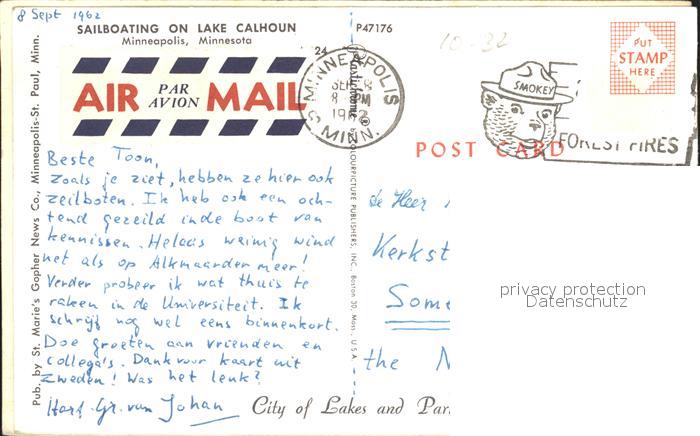 8 Sept 1962
SAILBOATING ON LAKE CALHOUN
Minneapolis, Minnesota
P47176
24
AIR PAR AVION MAIL
MINNEAPOLIS
SEP 8
8 PM
1962
MINN.
SMOKEY
FOREST FIRES
PUT
STAMP
HERE
10-32
POST CARD
Pub. by St. Marie's Gopher News Co., Minneapolis-St. Paul, Minn.
Plastichrome ® by COLOURPICTURE PUBLISHERS, INC. Boston 30, Mass., U.S.A.
Beste Toon,
Zoals je ziet, hebben ze hier ook
zeilboten. Ik heb ook een och-
tend gezeild in de boot van
kennissen. Helaas weinig wind
net als op Alkmaardermeer!
Verder probeer ik wat thuis te
raken in de Universiteit. Ik
schrijf nog wel eens binnenkort.
Doe groeten aan vrienden en
collega's. Dank voor kaart uit
Zweden! Was het leuk?
Hart. Gr. van Johan
de Heer
Kerkst
Some
the N
City of Lakes and Par
privacy protection
Datenschutz